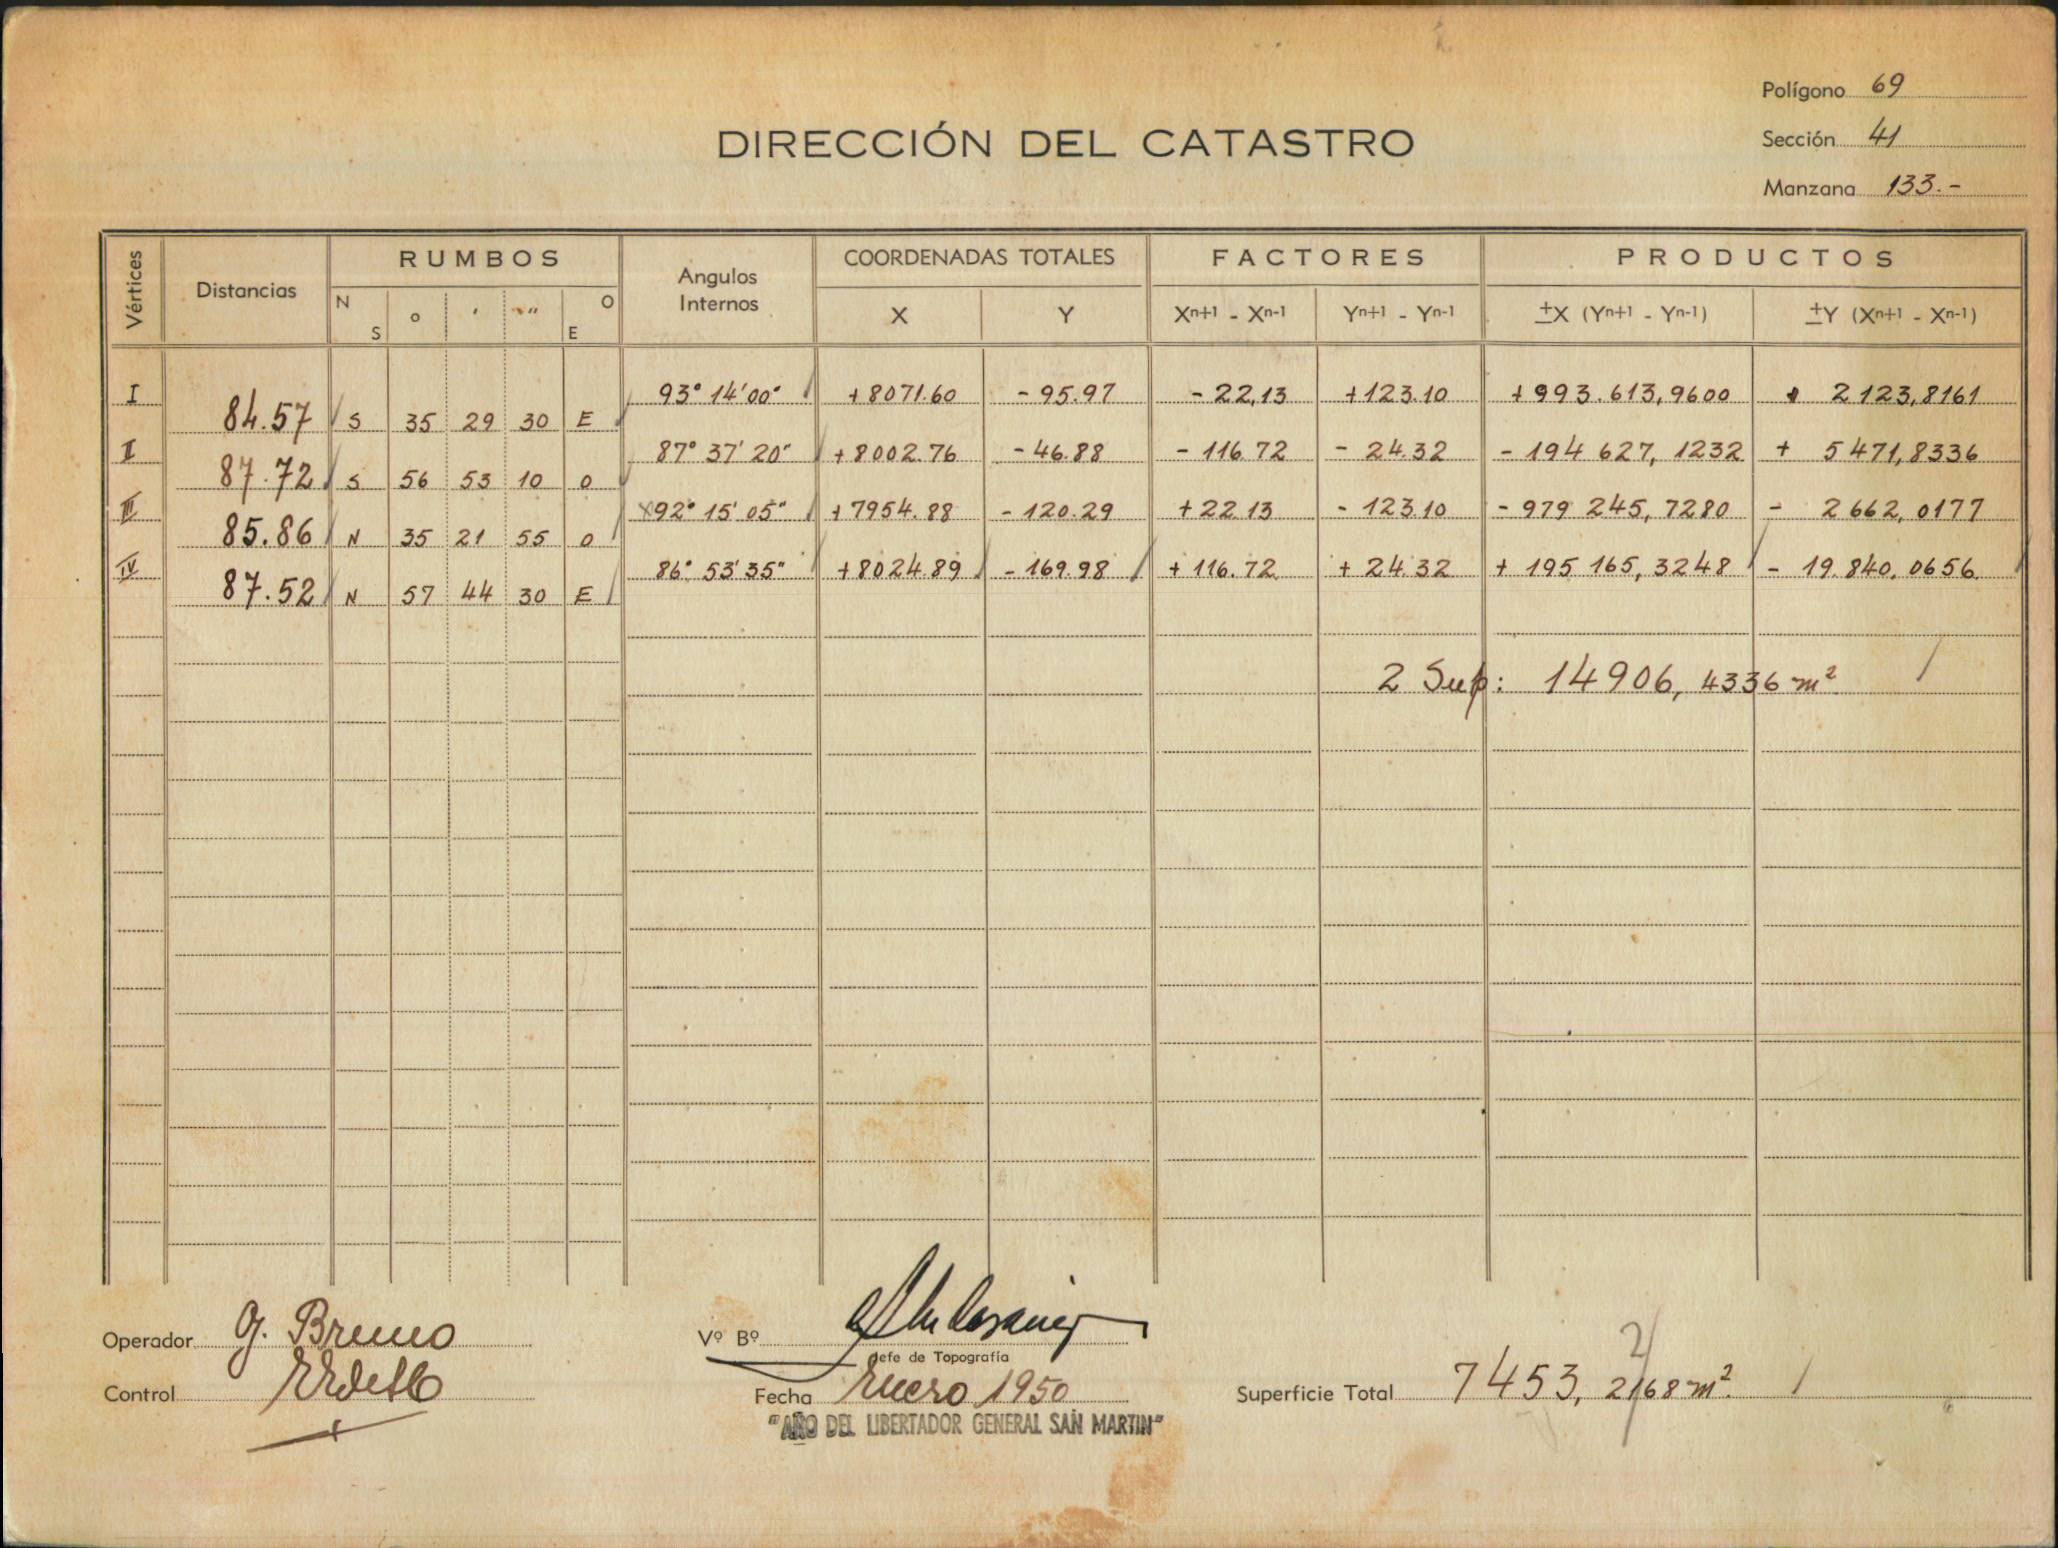 Polígono 69
DIRECCIÓN DEL CATASTRO
Sección 41
Manzana 133.-
Vértices Distancias RUMBOS Angulos Internos COORDENADAS TOTALES FACTORES PRODUCTOS
N S ° ' " O E X Y Xn+1 - Xn-1 Yn+1 - Yn-1 ±X (Yn+1 - Yn-1) ±Y (Xn+1 - Xn-1)
I 93° 14' 00" +8071.60 - 95.97 - 22,13 +123.10 +993.613,9600 + 2123,8161
84.57 S 35 29 30 E
II 87° 37' 20" +8002.76 - 46.88 - 116.72 - 24.32 - 194 627, 1232 + 5471,8336
87.72 S 56 53 10 O
III 92° 15' 05" +7954.88 - 120.29 +22.13 - 123.10 - 979 245, 7280 - 2662, 0177
85.86 N 35 21 55 O
IV 86° 53' 35" +8024.89 - 169.98 + 116.72 + 24.32 + 195 165, 3248 - 19.840, 0656
87.52 N 57 44 30 E
2 Sup: 14906, 4336 m²
Operador G. Bruno
Vº Bº
Jefe de Topografía
Control
Fecha Enero 1950
Superficie Total 7453, 2168 m².
2
"AÑO DEL LIBERTADOR GENERAL SAN MARTIN"